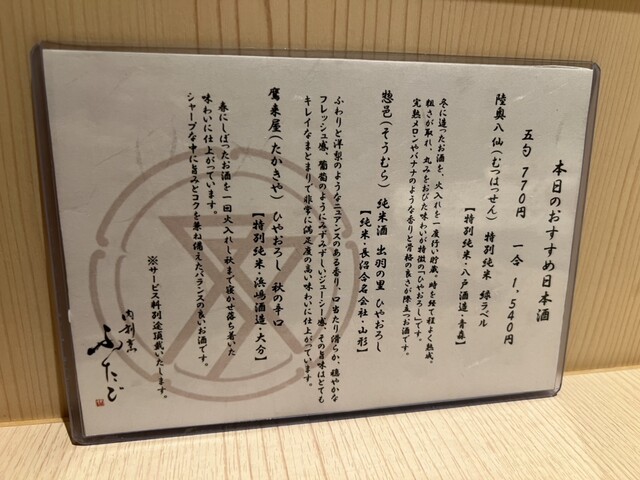 本日のおすすめ日本酒
五勺 770円 一合 1,540円
陸奥八仙(むつはっせん) 特別純米 緑ラベル
【特別純米・八戸酒造・青森】
冬に造ったお酒を、火入れを一度行い貯蔵。時を経て程よく熟成、
粗さが取れ、丸みをおびた味わいが特徴の"ひやおろし"です。
完熟メロンやバナナのような香りと骨格の良さが際立つお酒です。
惣邑(そうむら) 純米酒 出羽の里 ひやおろし
【純米・長沼合名会社・山形】
ふわりと洋梨のようなニュアンスのある香り。口当たり滑らか、穏やかな
フレッシュ感、葡萄のようにみずみずしいジューシー感、その旨味はとても
キレイなまとまりで非常に満足度の高い味わいに仕上がっています。
鷹来屋(たかきや) ひやおろし 秋の辛口
【特別純米・浜嶋酒造・大分】
春にしぼったお酒を一回火入れし秋まで寝かせ落ち着いた
味わいに仕上がっています。
シャープな中に旨みとコクを兼ね備えたバランスの良いお酒です。
※サービス料別途頂戴いたします。
肉割烹
ふたご